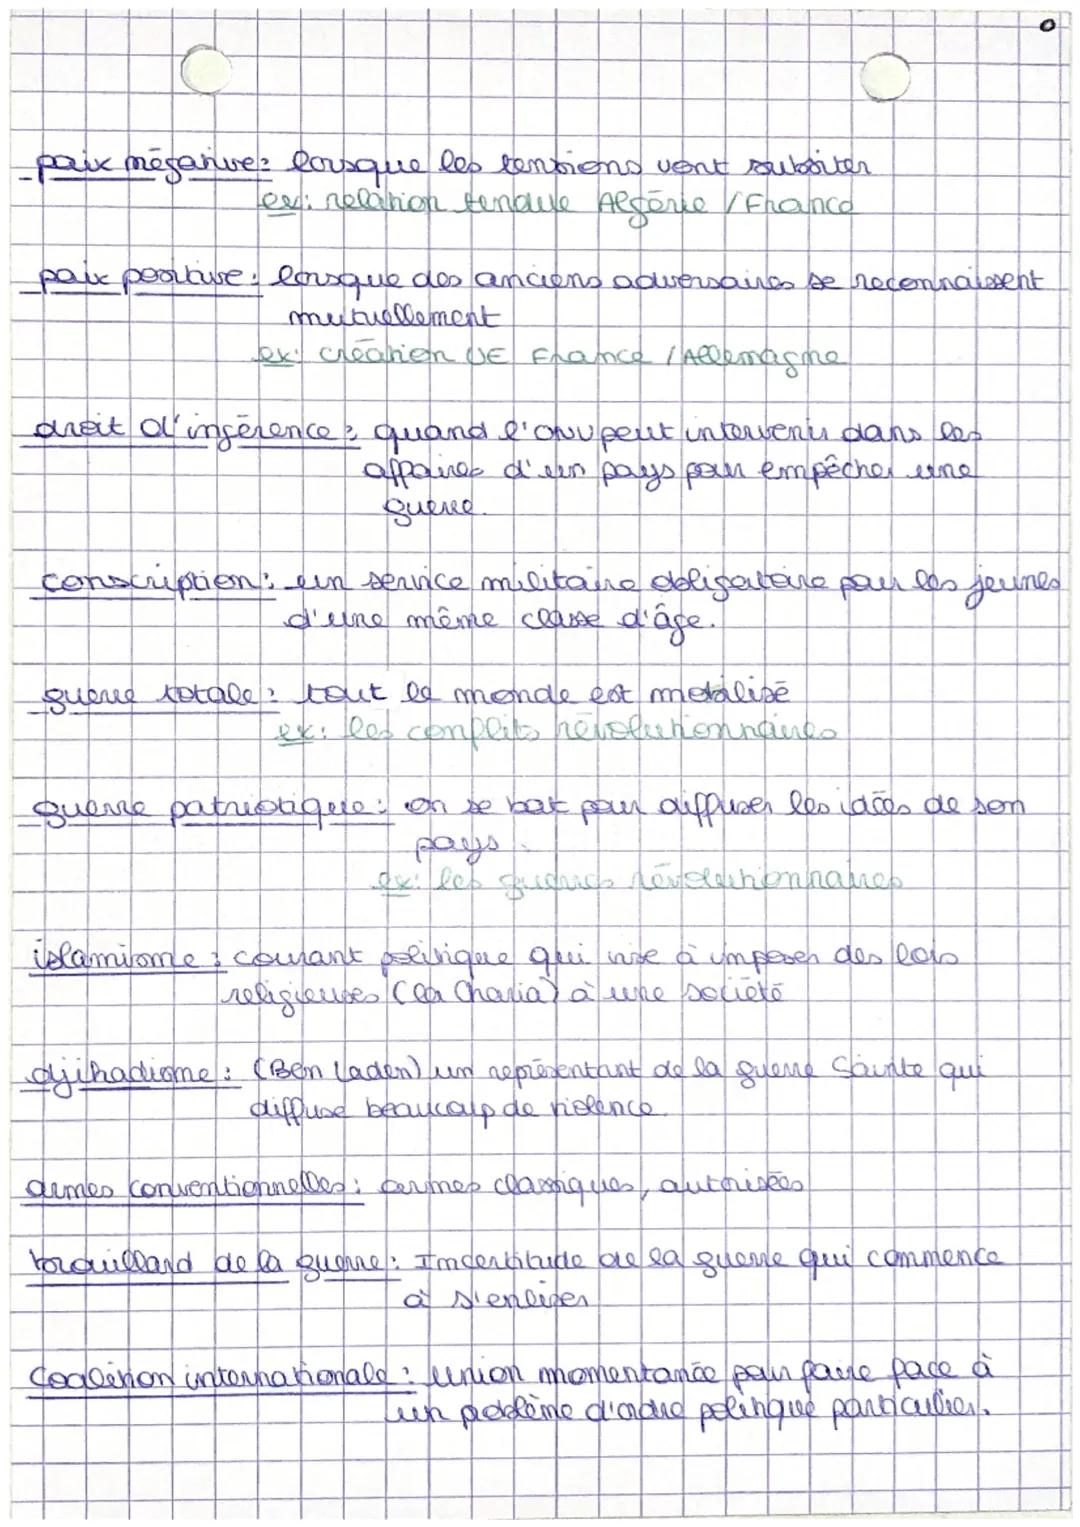 paix négative : lorsque les tensions vont subsiter
ex : relation tendue Algérie / France
paix positive : lorsque des anciens adversaires se reconnaissent
mutuellement
ex : création UE France / Allemagne
droit d'ingérence : quand l'ONU peut intervenir dans les
affaires d'un pays pour empêcher une
guerre.
conscription : un service militaire obligatoire pour les jeunes
d'une même classe d'âge.
guerre totale : tout le monde est mobilisé
ex : les conflits révolutionnaires
guerre patriotique : on se bat pour diffuser les idées de son
pays.
ex : les guerres révolutionnaires
islamisme : courant politique qui vise à imposer des lois
religieuses (la Charia) à une société
djihadisme : (Ben Laden) un représentant de la guerre Sainte qui
diffuse beaucoup de violence.
armes conventionnelles : armes classiques, autorisées
brouillard de la guerre : Incertitude de la guerre qui commence
à s'enliser
Coalition internationale : union momentanée pour faire face à
un problème d'ordre politique particulier.